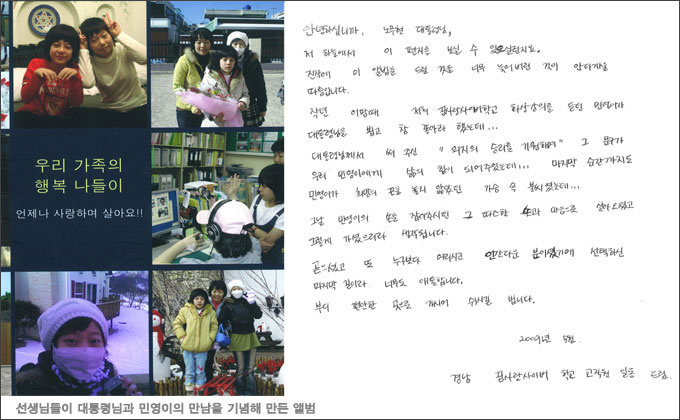 우리 가족의
행복 나들이
언제나 사랑하며 살아요!!
안녕하십니까, 노무현 대통령님,
저 하늘에서 이 편지를 보실 수 있으실런지요.
진작에 이 말씀을 드릴 것을 너무 늦어버린 것이 안타까울
따름입니다.
작년 이맘때 저희 꿈사랑사이버학교 화상강의를 듣던 민영이가
대통령님을 뵙고 참 좋아라 했는데...
대통령님께서 써 주신 " 의지의 승리를 기원하며" 그 문구가
우리 민영이에게 삶의 힘이 되어주었는데... 마지막 순간까지도
민영이가 희망의 끈을 놓지 않았던 가슴 속 불씨였는데...
그날 민영이의 손을 잡아주시던 그 따스한 손과 마음으로 살아오셨고
그렇게 가셨으리라 생각됩니다.
곧으셨고 또 누구보다 여리시고 인간다운 분이셨기에 선택하신
마지막 길이라 너무도 애통합니다.
부디 편안한 곳으로 가시어 쉬시길 빕니다.
2009년 5월.
경남 꿈사랑사이버 학교 교직원 일동 드림.
선생님들이 대통령님과 민영이의 만남을 기념해 만든 앨범